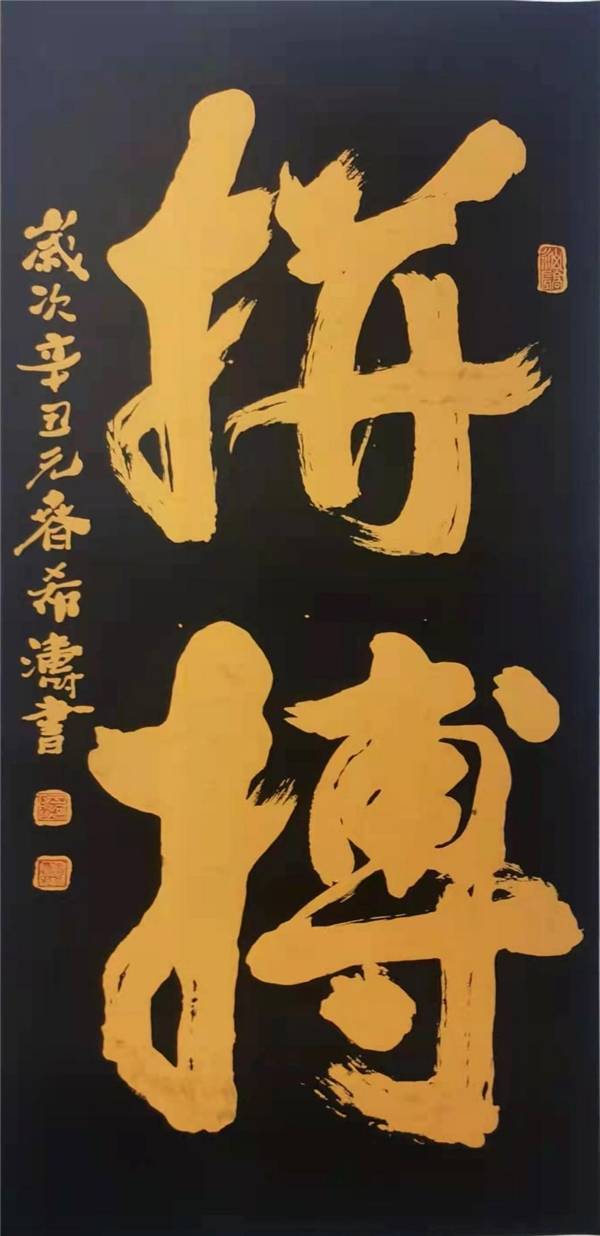 拼搏
歲次辛丑元春希濤書